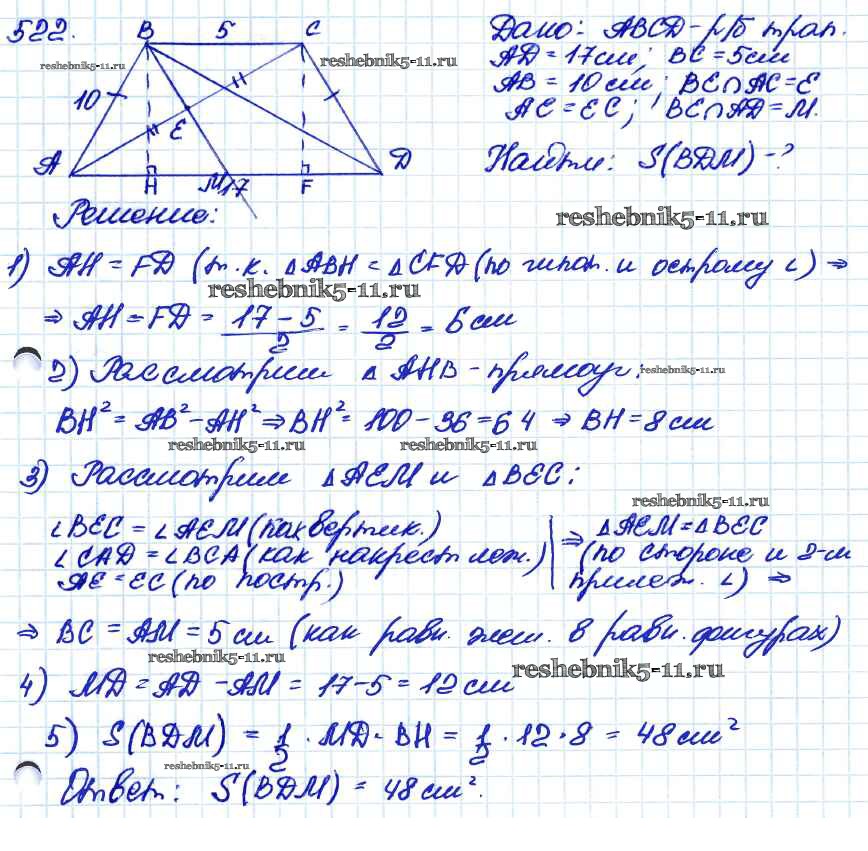 522.
B 5 C
Дано: ABCD - р/б трап.
AD = 17 см; BC = 5 см
reshebnik5-11.ru
reshebnik5-11.ru
10
AB = 10 см; BE∩AC = E
AE = EC; BE∩AD = M.
E
A D
Найти: S(BDM) - ?
H M 17 F
Решение:
reshebnik5-11.ru
1) AH = FD (т.к. △ABH = △CFD (по гипот. и острому ∠) ⇒
reshebnik5-11.ru
⇒ AH = FD = 17 - 5 / 2 = 12 / 2 = 6 см
2) Рассмотрим △ AHB - прямоуг.:
reshebnik5-11.ru
BH² = AB² - AH² ⇒ BH² = 100 - 36 = 64 ⇒ BH = 8 см
reshebnik5-11.ru reshebnik5-11.ru
3) Рассмотрим △AEM и △BEC:
reshebnik5-11.ru
∠BEC = ∠AEM (как вертик.)
∠CAD = ∠BCA (как накрест леж.)
AE = EC (по постр.)
⇒ △AEM = △BEC
(по стороне и 2-м
прилеж. ∠) ⇒
⇒ BC = AM = 5 см (как равн. элем. в равн. фигурах)
reshebnik5-11.ru
reshebnik5-11.ru
4) MD = AD - AM = 17 - 5 = 12 см
5) S(BDM) = 1/2 · MD · BH = 1/2 · 12 · 8 = 48 см²
reshebnik5-11.ru
Ответ: S(BDM) = 48 см².